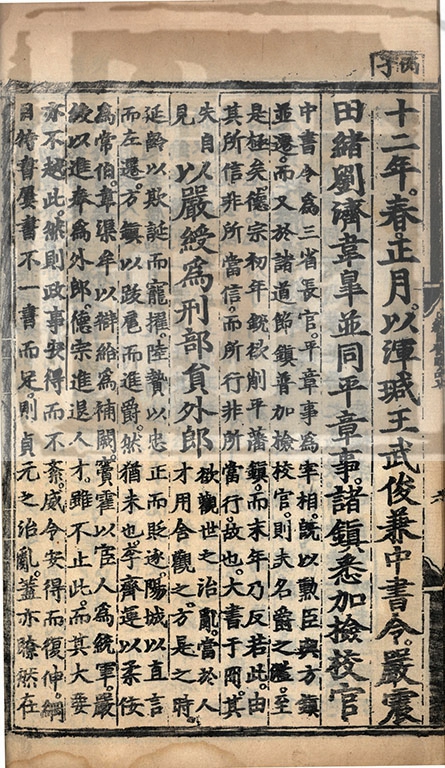 丙子
十二年。春正月。以渾瑊王武俊兼中書令。嚴震
田緒劉濟韋皐並同平章事。諸鎮悉加檢校官
中書令為三省長官。平章事為宰相。既以勳臣與方鎮
並還。而又於諸道節鎮普加檢校官。則夫名爵之濫。至
是極矣。德宗初年銳欲削平藩鎮。而末年乃反若此。由
其所信非所當信。而所行非所當行。故也。大書于冊。其
失自
見
以嚴綬為刑部員外郎
欲觀世之治亂。當於人
才用舍觀之。方是之時。
延齡以欺誕而寵擢。陸贄以忠正而貶逐。陽城以直言
而左遷。方鎮以跋扈而進爵。然猶未也。李齊運以柔佞
為常伯。韋渠牟以辯給為補闕。竇霍以宦人為統軍。嚴
綬以進奉為外郎。德宗進退人才。雖不止此。而其大要
亦不越此。然則政事安得而不紊。威令安得而復伸。綱
目特書屢書不一書而足。則貞元之治亂。蓋亦瞭然在